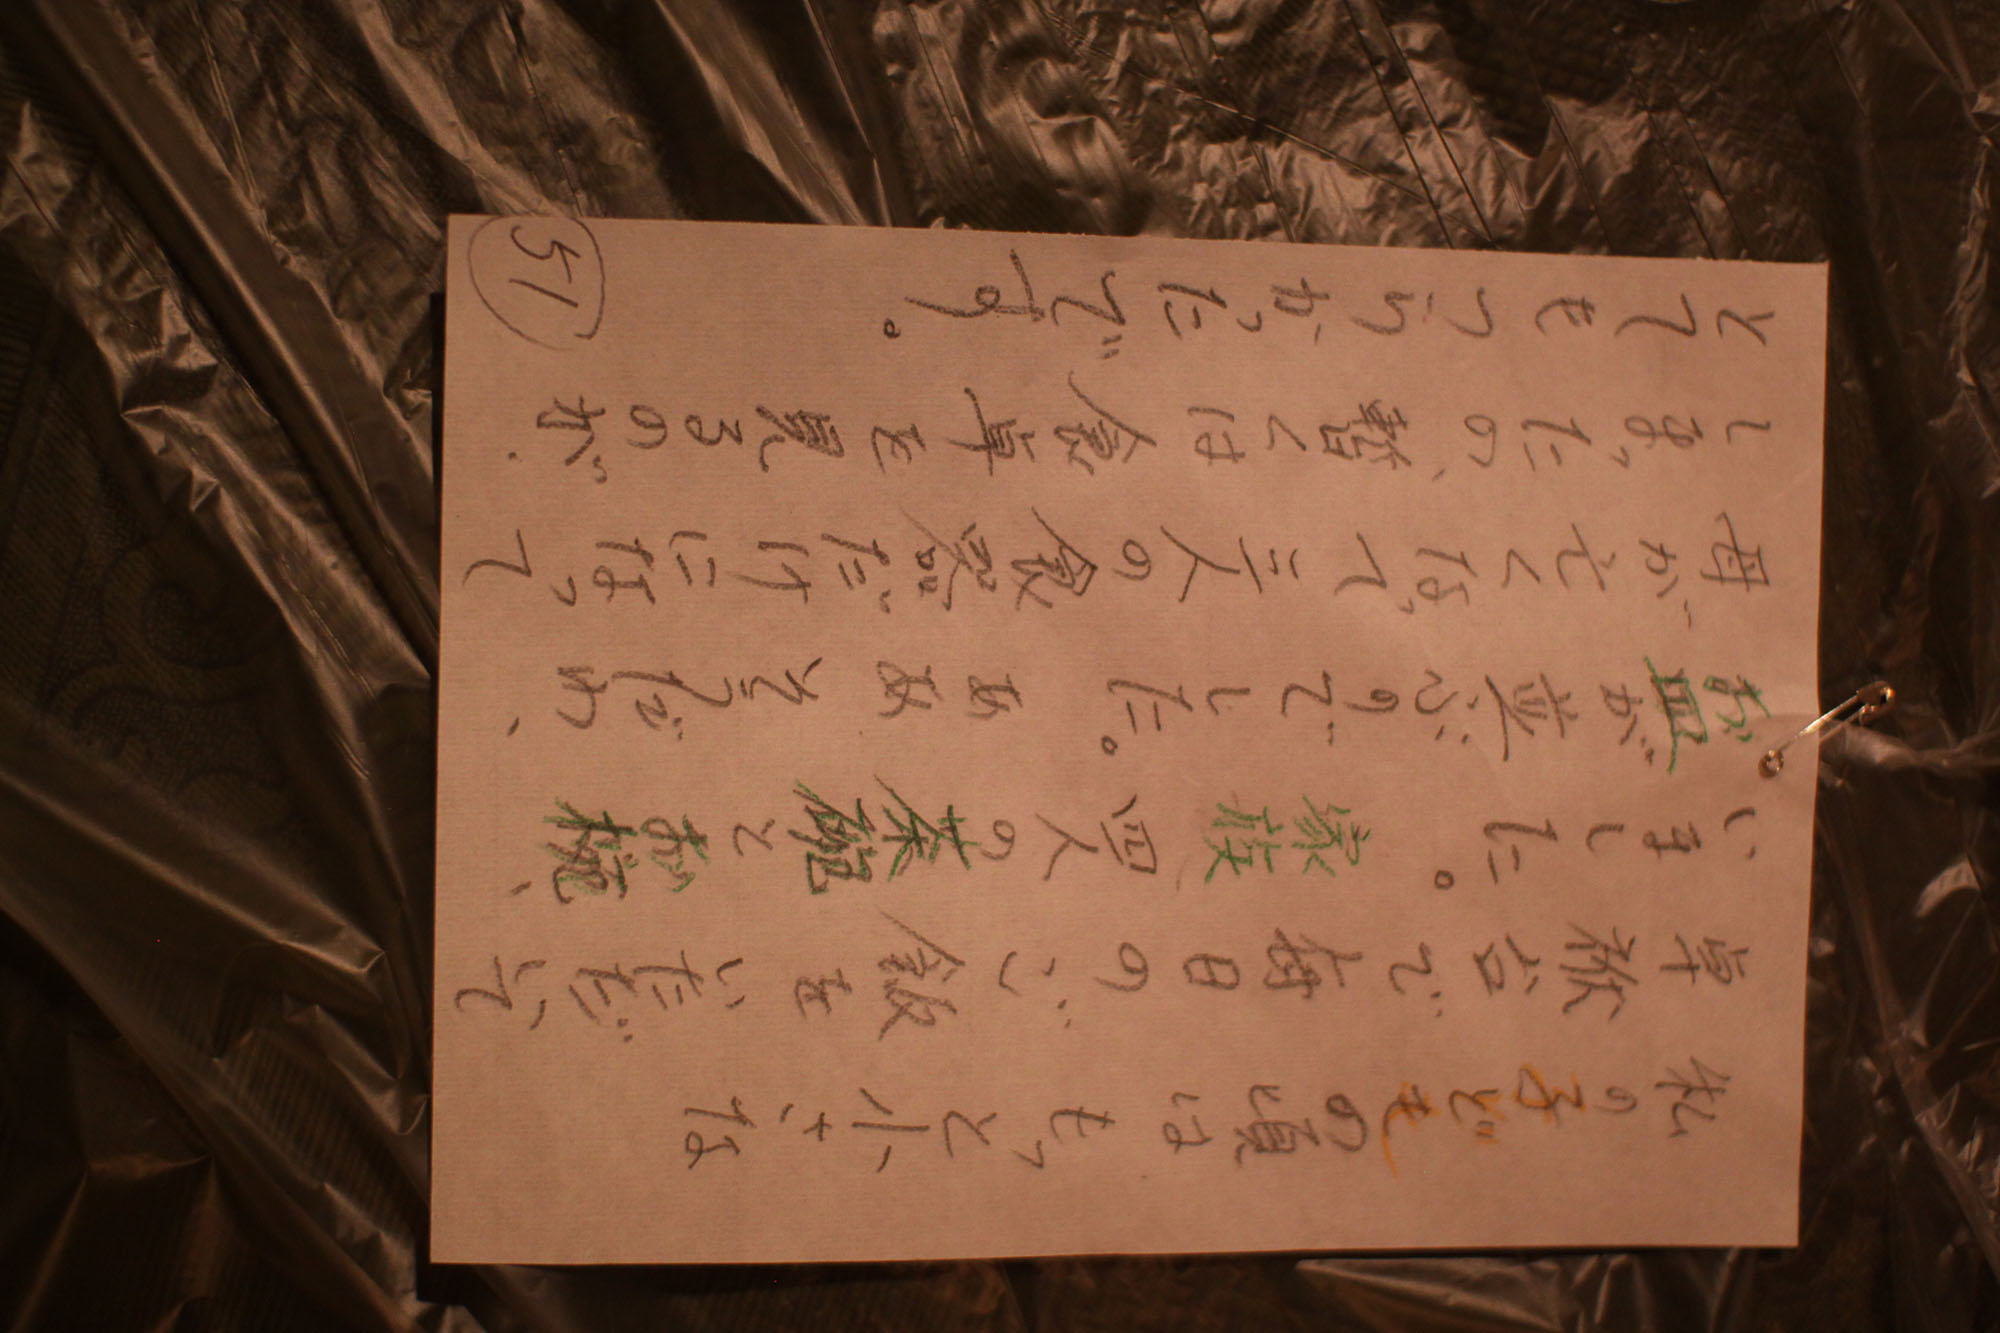 私の子どもの頃はもっと小さな
卓袱台で毎日のご飯をいただいて
いました。家族四人の茶碗とお椀、
お皿が並ぶのでした。ああそうだわ、
母が亡くなって三人の食器だけになって
しまったの、暫くは食卓を見るのが、
とてもつらかったです。
51